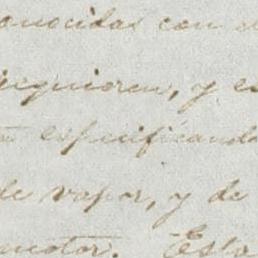 conocidas con e
siguieren, y e
especificando
de vapor, y de
motor. Esta